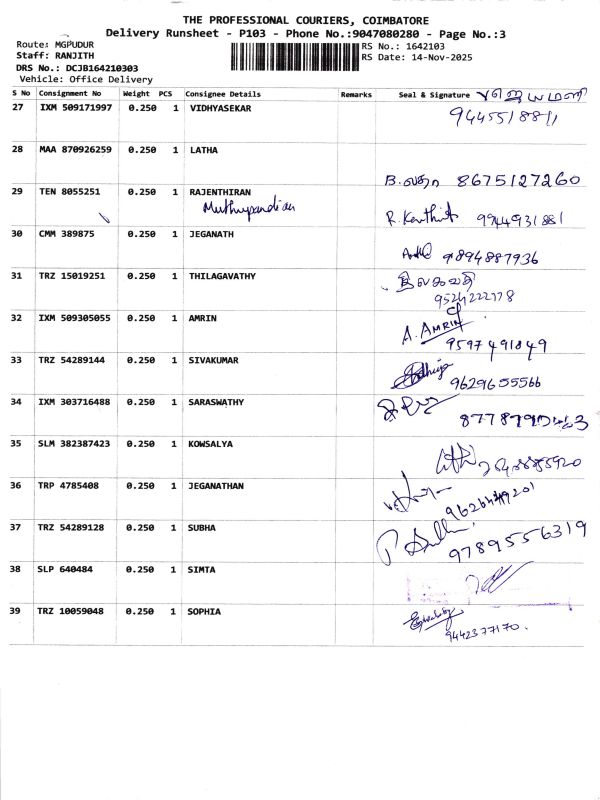 THE PROFESSIONAL COURIERS, COIMBATORE
Delivery Runsheet - P103 - Phone No.:9047080280 - Page No.:3
Route: MGPUDUR
Staff: RANJITH
DRS No.: DCJB164210303
Vehicle: Office Delivery
RS No.: 1642103
RS Date: 14-Nov-2025
S No Consignment No Weight PCS Consignee Details Remarks Seal & Signature
27 IXM 509171997 0.250 1 VIDHYASEKAR
விஜயமணி
28 MAA 870926259 0.250 1 LATHA
B.லதா 8675127260
29 TEN 8055251 0.250 1 RAJENTHIRAN
Muthupandian
R. Kenthik 9944931881
30 CMM 389875 0.250 1 JEGANATH
9894887936
31 TRZ 15019251 0.250 1 THILAGAVATHY
32 IXM 509305055 0.250 1 AMRIN
A. AMRIN
9597491849
33 TRZ 54289144 0.250 1 SIVAKUMAR
9629655566
34 IXM 303716488 0.250 1 SARASWATHY
35 SLM 382387423 0.250 1 KOWSALYA
36 TRP 4785408 0.250 1 JEGANATHAN
37 TRZ 54289128 0.250 1 SUBHA
9789556319
38 SLP 640484 0.250 1 SIMTA
39 TRZ 10059048 0.250 1 SOPHIA
9442377170.